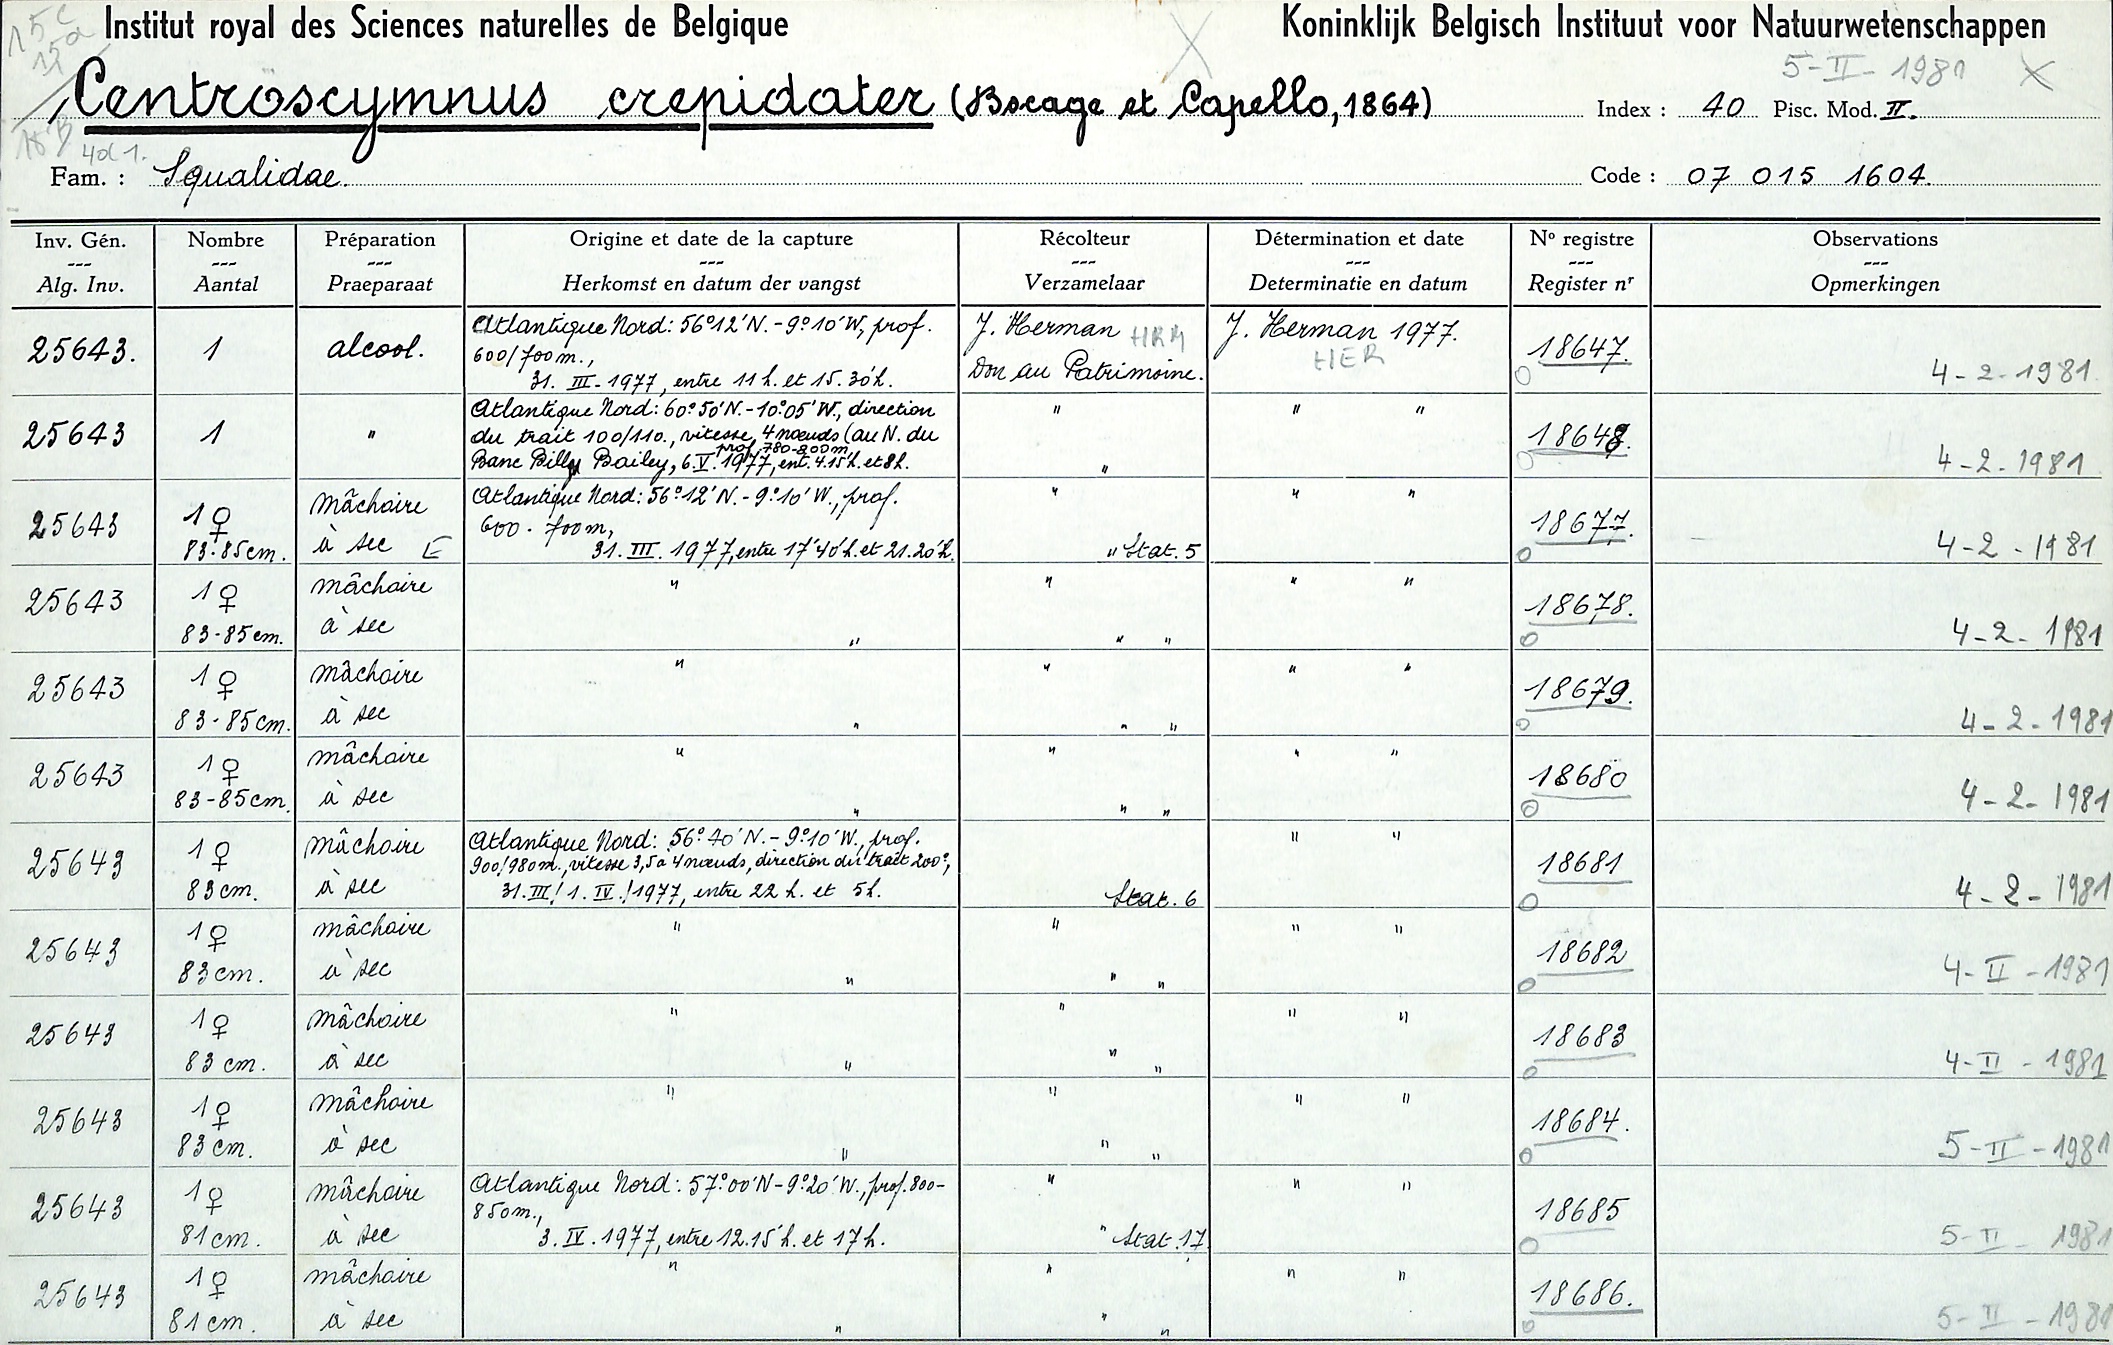 15c
15a
Institut royal des Sciences naturelles de Belgique
Koninklijk Belgisch Instituut voor Natuurwetenschappen
5-II-1981
Centroscymnus crepidater (Bocage et Capello, 1864)
Index : 40 Pisc. Mod. II.
Fam. : Squalidae.
Code : 07 015 1604.
Inv. Gén. Nombre Préparation Origine et date de la capture Récolteur Détermination et date No registre Observations
--- --- --- --- --- --- --- ---
Alg. Inv. Aantal Praeparaat Herkomst en datum der vangst Verzamelaar Determinatie en datum Register nr Opmerkingen
25643. 1 alcool. Atlantique Nord: 56°12'N.-9°10'W, prof.
600/700m.,
31. III-1977, entre 11h. et 15.30'h.
J. Herman HRM
Don au Patrimoine.
J. Herman 1977.
HER
18647.
4-2-1981
25643 1 " Atlantique Nord: 60°50'N.-10°05'W., direction
du trait 100/110., vitesse, 4 nœuds (au N. du
prof. 780-800m,
Banc Billy Bailey, 6.V.1977, ent. 4.15'h. et 8h.
" " " "
18648.
4-2-1981
25643 1 ♀
83-85cm.
mâchoire
à sec E
Atlantique Nord: 56°12'N.-9°10'W., prof.
600-700m,
31. III. 1977, entre 17'40'h. et 21.20'h.
"
" Stat. 5
" "
18677.
4-2-1981
25643 1 ♀
83-85cm.
mâchoire
à sec
" " " " " " "
18678.
4-2-1981
25643 1 ♀
83-85cm.
mâchoire
à sec
" " " " " " "
18679.
4-2-1981
25643 1 ♀
83-85cm.
mâchoire
à sec
" " " " " " "
18680
4-2-1981
25643 1 ♀
83cm.
mâchoire
à sec
Atlantique Nord: 56°40'N.-9°10'W., prof.
900/980m., vitesse 3,5 à 4 nœuds, direction du trait 200°,
31.III/1.IV./1977, entre 22h. et 5h.
Stat. 6
" "
18681
4-2-1981
25643 1 ♀
83cm.
mâchoire
à sec
" " " " " " "
18682
4-II-1981
25643 1 ♀
83cm.
mâchoire
à sec
" " " " " " "
18683
4-II-1981
25643 1 ♀
83cm.
mâchoire
à sec
" " " " " " "
18684.
5-II-1981
25643 1 ♀
81cm.
mâchoire
à sec
Atlantique Nord: 57°00'N-9°20'W., prof. 800-
850m.,
3. IV. 1977, entre 12.15'h. et 17h.
"
" Stat. 17
" "
18685
5-II-1981
25643 1 ♀
81cm.
mâchoire
à sec
" " " " " " "
18686.
5-II-1981